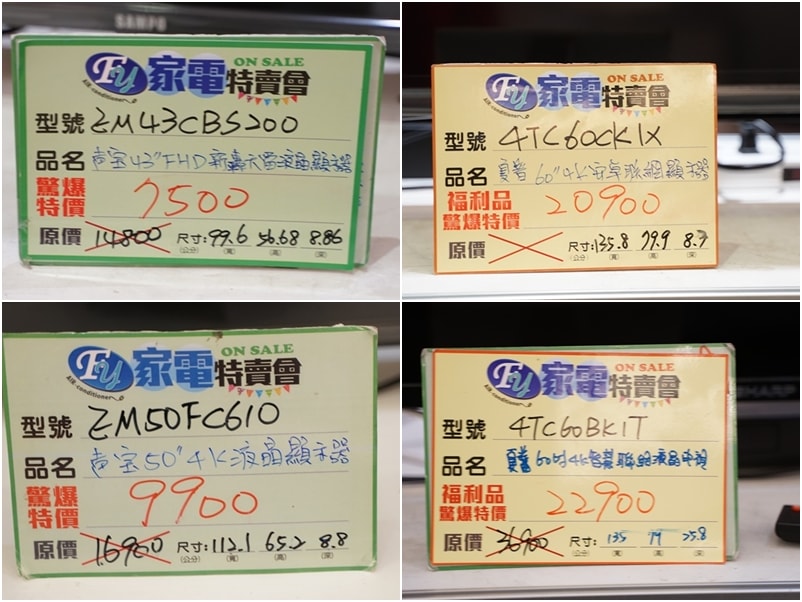 SAMPO
Fu 家電特賣會 ON SALE
Air-conditioner
型號 EM43CBS200
品名 声宝43"FHD新轟天雷液晶顯示器
驚爆特價 7500
原價 14800 尺寸:99.6 56.68 8.86
(公分) (寬) (高) (深)
Fu 家電特賣會 ON SALE
Air-conditioner
型號 4TC60CK1X
品名 夏普60"4K安卓聯網顯示器
福利品
驚爆特價 20900
原價 尺寸:135.8 79.9 8.7
(公分) (寬) (高) (深)
Fu 家電特賣會 ON SALE
Air-conditioner
型號 EM50FC610
品名 声宝50"4K液晶顯示器
驚爆特價 9900
原價 16900 尺寸:112.1 65.2 8.8
(公分) (寬) (高) (深)
SHARP
Fu 家電特賣會 ON SALE
Air-conditioner
型號 4TC60BK1T
品名 夏普60吋4K智慧聯網液晶電視
福利品
驚爆特價 22900
原價 36900 尺寸:135 79 25.8
(公分) (寬) (高) (深)